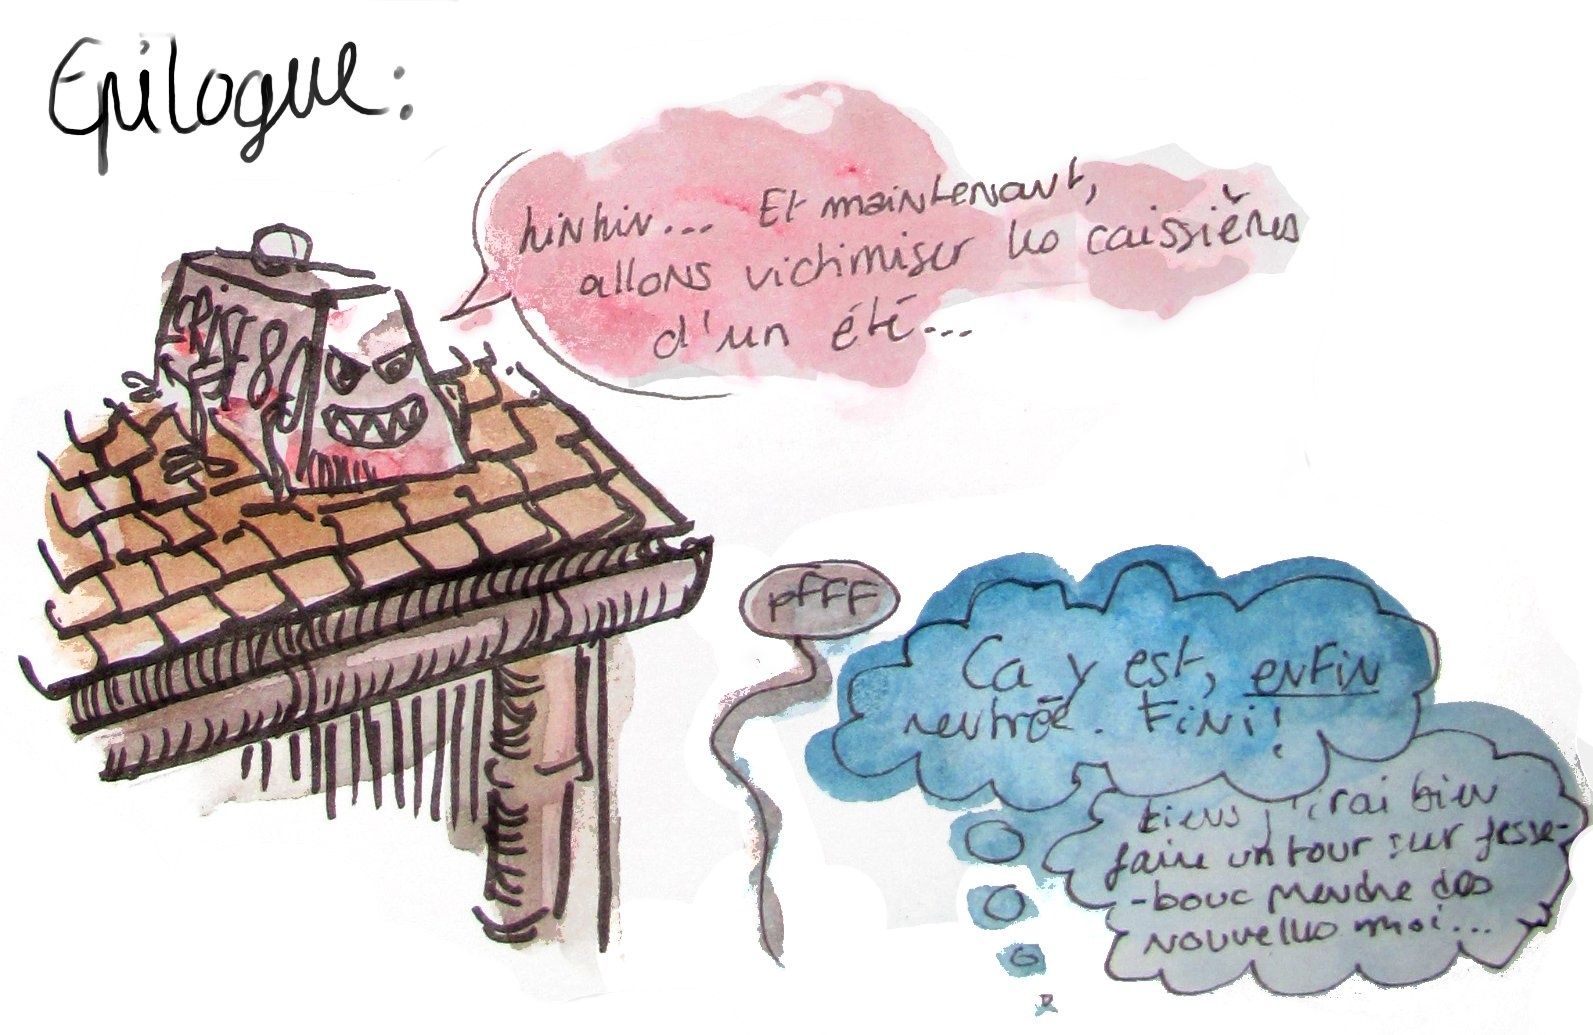 Epilogue:
hinhin... Et maintenant,
allons victimiser les caissières
d'un été...
pffff
Ca y est, enfin
rentrée. Fini!
tiens j'irai bien
faire un tour sur fesse-
-bouc prendre des
nouvelles moi...